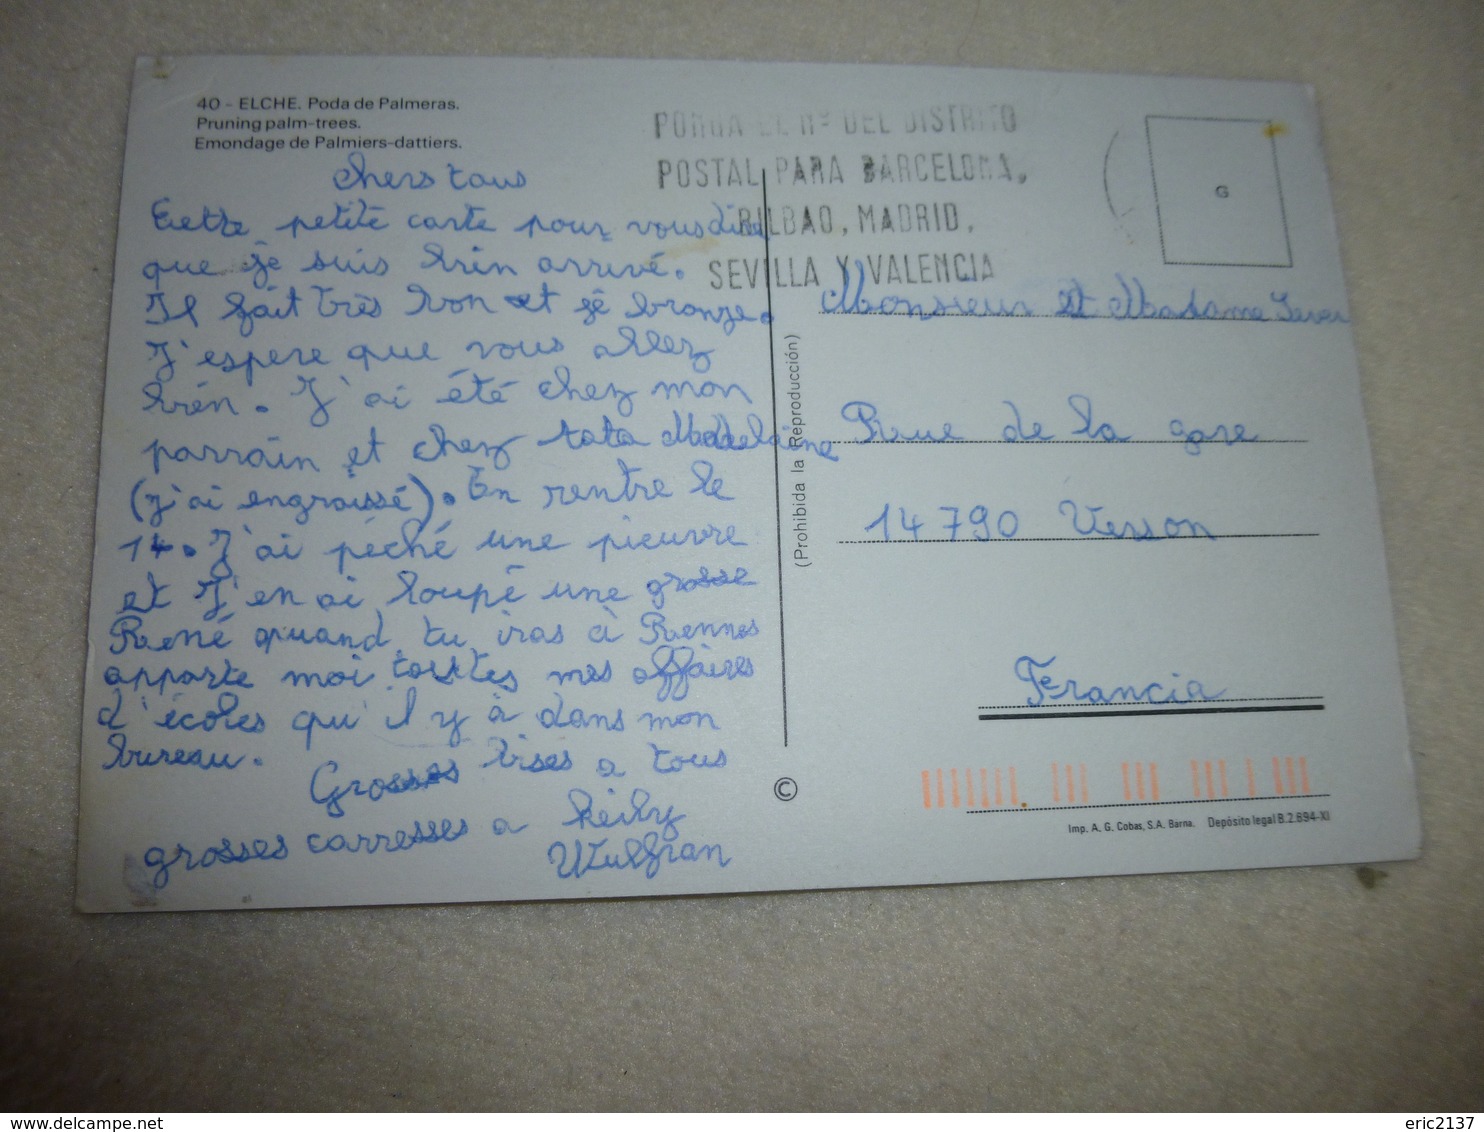 40 - ELCHE. Poda de Palmeras.
Pruning palm-trees.
Emondage de Palmiers-dattiers.
chers tous
Cette petite carte pour vous dire
que je suis bien arrivé.
Il fait très bon et je bronze.
J'espere que vous allez
bien. J'ai été chez mon
parrain et chez tata Madelaine
(j'ai engraissé). En rentre le
14. J'ai péché une pieuvre
et J'en ai loupé une grosse
René quand tu iras à Rennes
apporte moi toutes mes affaires
d'écoles qu'il y à dans mon
bureau.
Grosses bises a tous
grosses carresses a Keily
Wulfran
PONGA EL Nº DEL DISTRITO
POSTAL PARA BARCELONA,
BILBAO, MADRID,
SEVILLA Y VALENCIA
G
Monsieur et Madame
Rue de la gare
14790 Verson
Francia
(Prohibida la Reproducción)
©
Imp. A. G. Cobas, S.A. Barna. Depósito legal B.2.694-XI
eric2137